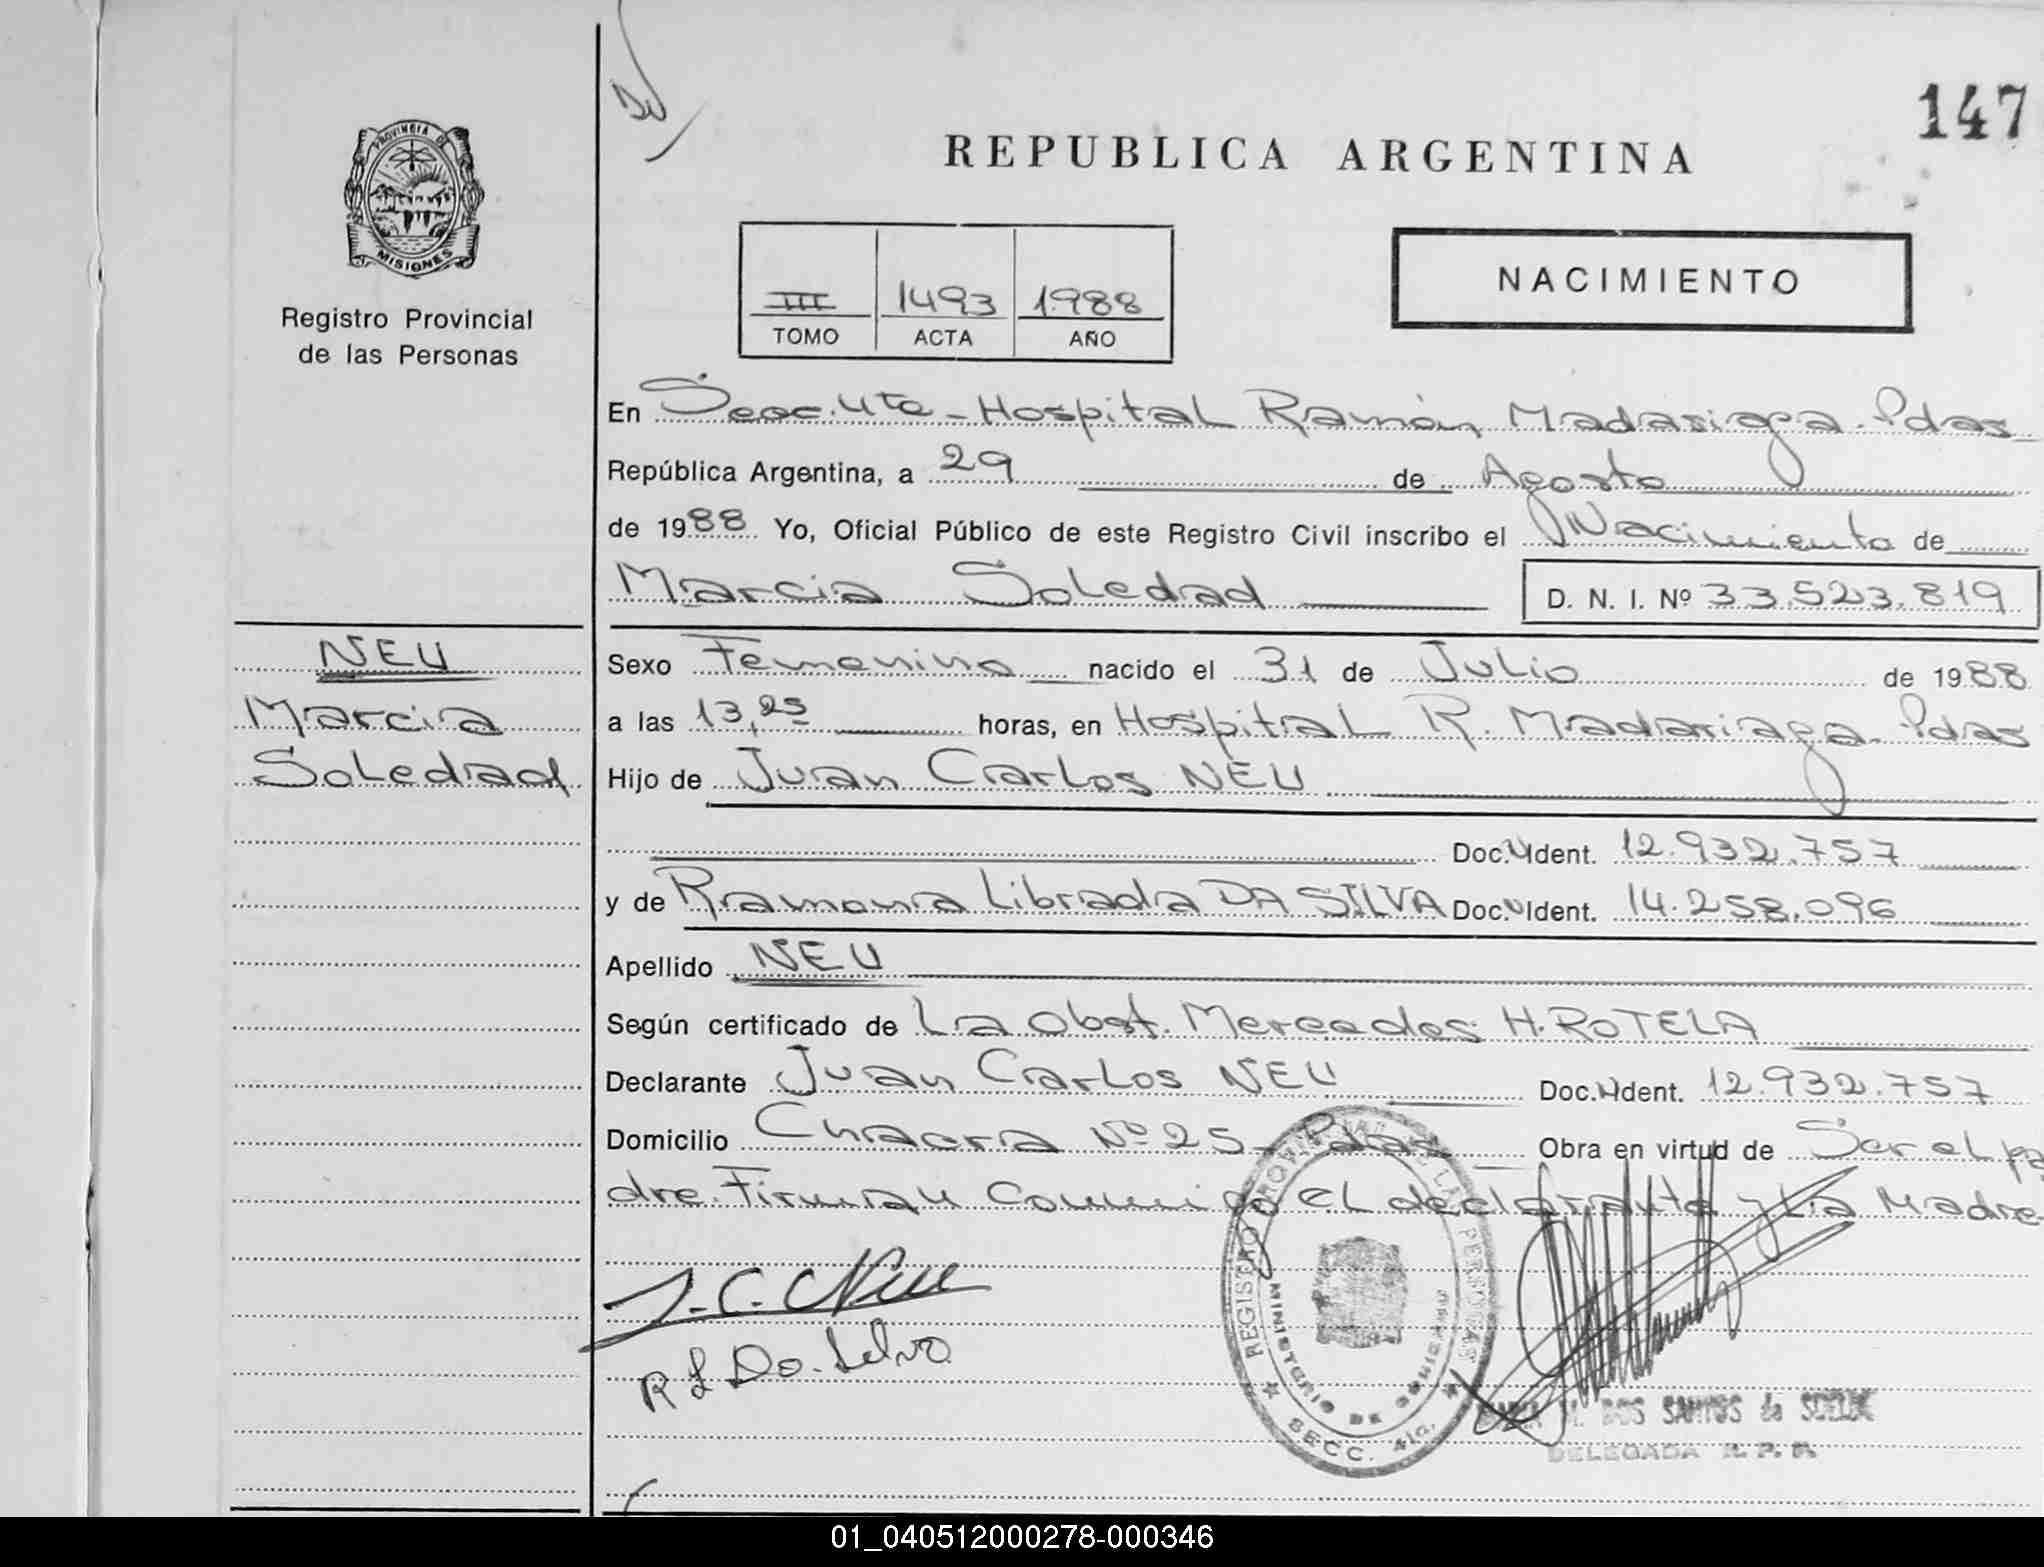 147
REPUBLICA ARGENTINA
PROVINCIA DE
MISIONES
Registro Provincial
de las Personas
NACIMIENTO
III 1493 1.988
TOMO ACTA AÑO
En Secc. 4ta - Hospital Ramón Madariaga - Pdas
República Argentina, a 29 de Agosto
de 1988 Yo, Oficial Público de este Registro Civil inscribo el Nacimiento de
Marcia Soledad D. N. I. Nº 33.523.819
NEU
Marcia
Soledad
Sexo Femenino nacido el 31 de Julio de 1988
a las 13,25 horas, en Hospital R. Madariaga - Pdas
Hijo de Juan Carlos NEU
Doc. Ident. 12.932.757
y de Ramona Librada DA SILVA Doc. Ident. 14.258.096
Apellido NEU
Según certificado de La Obst. Mercedes H. ROTELA
Declarante Juan Carlos NEU Doc. Ident. 12.932.757
Domicilio Chacra Nº 25 - Pdas Obra en virtud de Ser el pa
dre. Firman conmigo el declarante y la Madre
J. C. Neu
R L Da. Silva
REGISTRO PROVINCIAL DE LAS PERSONAS
MINISTERIO DE GOBIERNO
SECC. 4ta.
DOS SANTOS de
DELEGADA R. P. P.
01_040512000278-000346